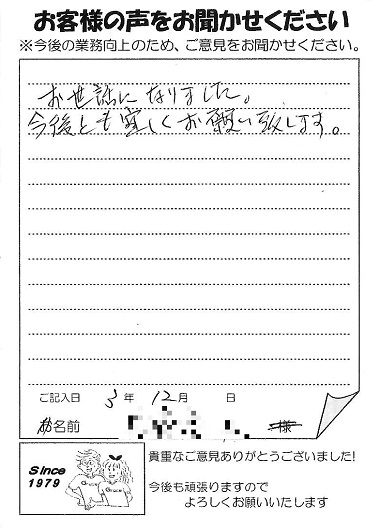 お客様の声をお聞かせください
※今後の業務向上のため、ご意見をお聞かせください。
お世話になりました。
今後とも宜しくお願い致します。
ご記入日 3年 12月 日
お名前 様
貴重なご意見ありがとうございました!
今後も頑張りますので
よろしくお願いいたします
Since
1979